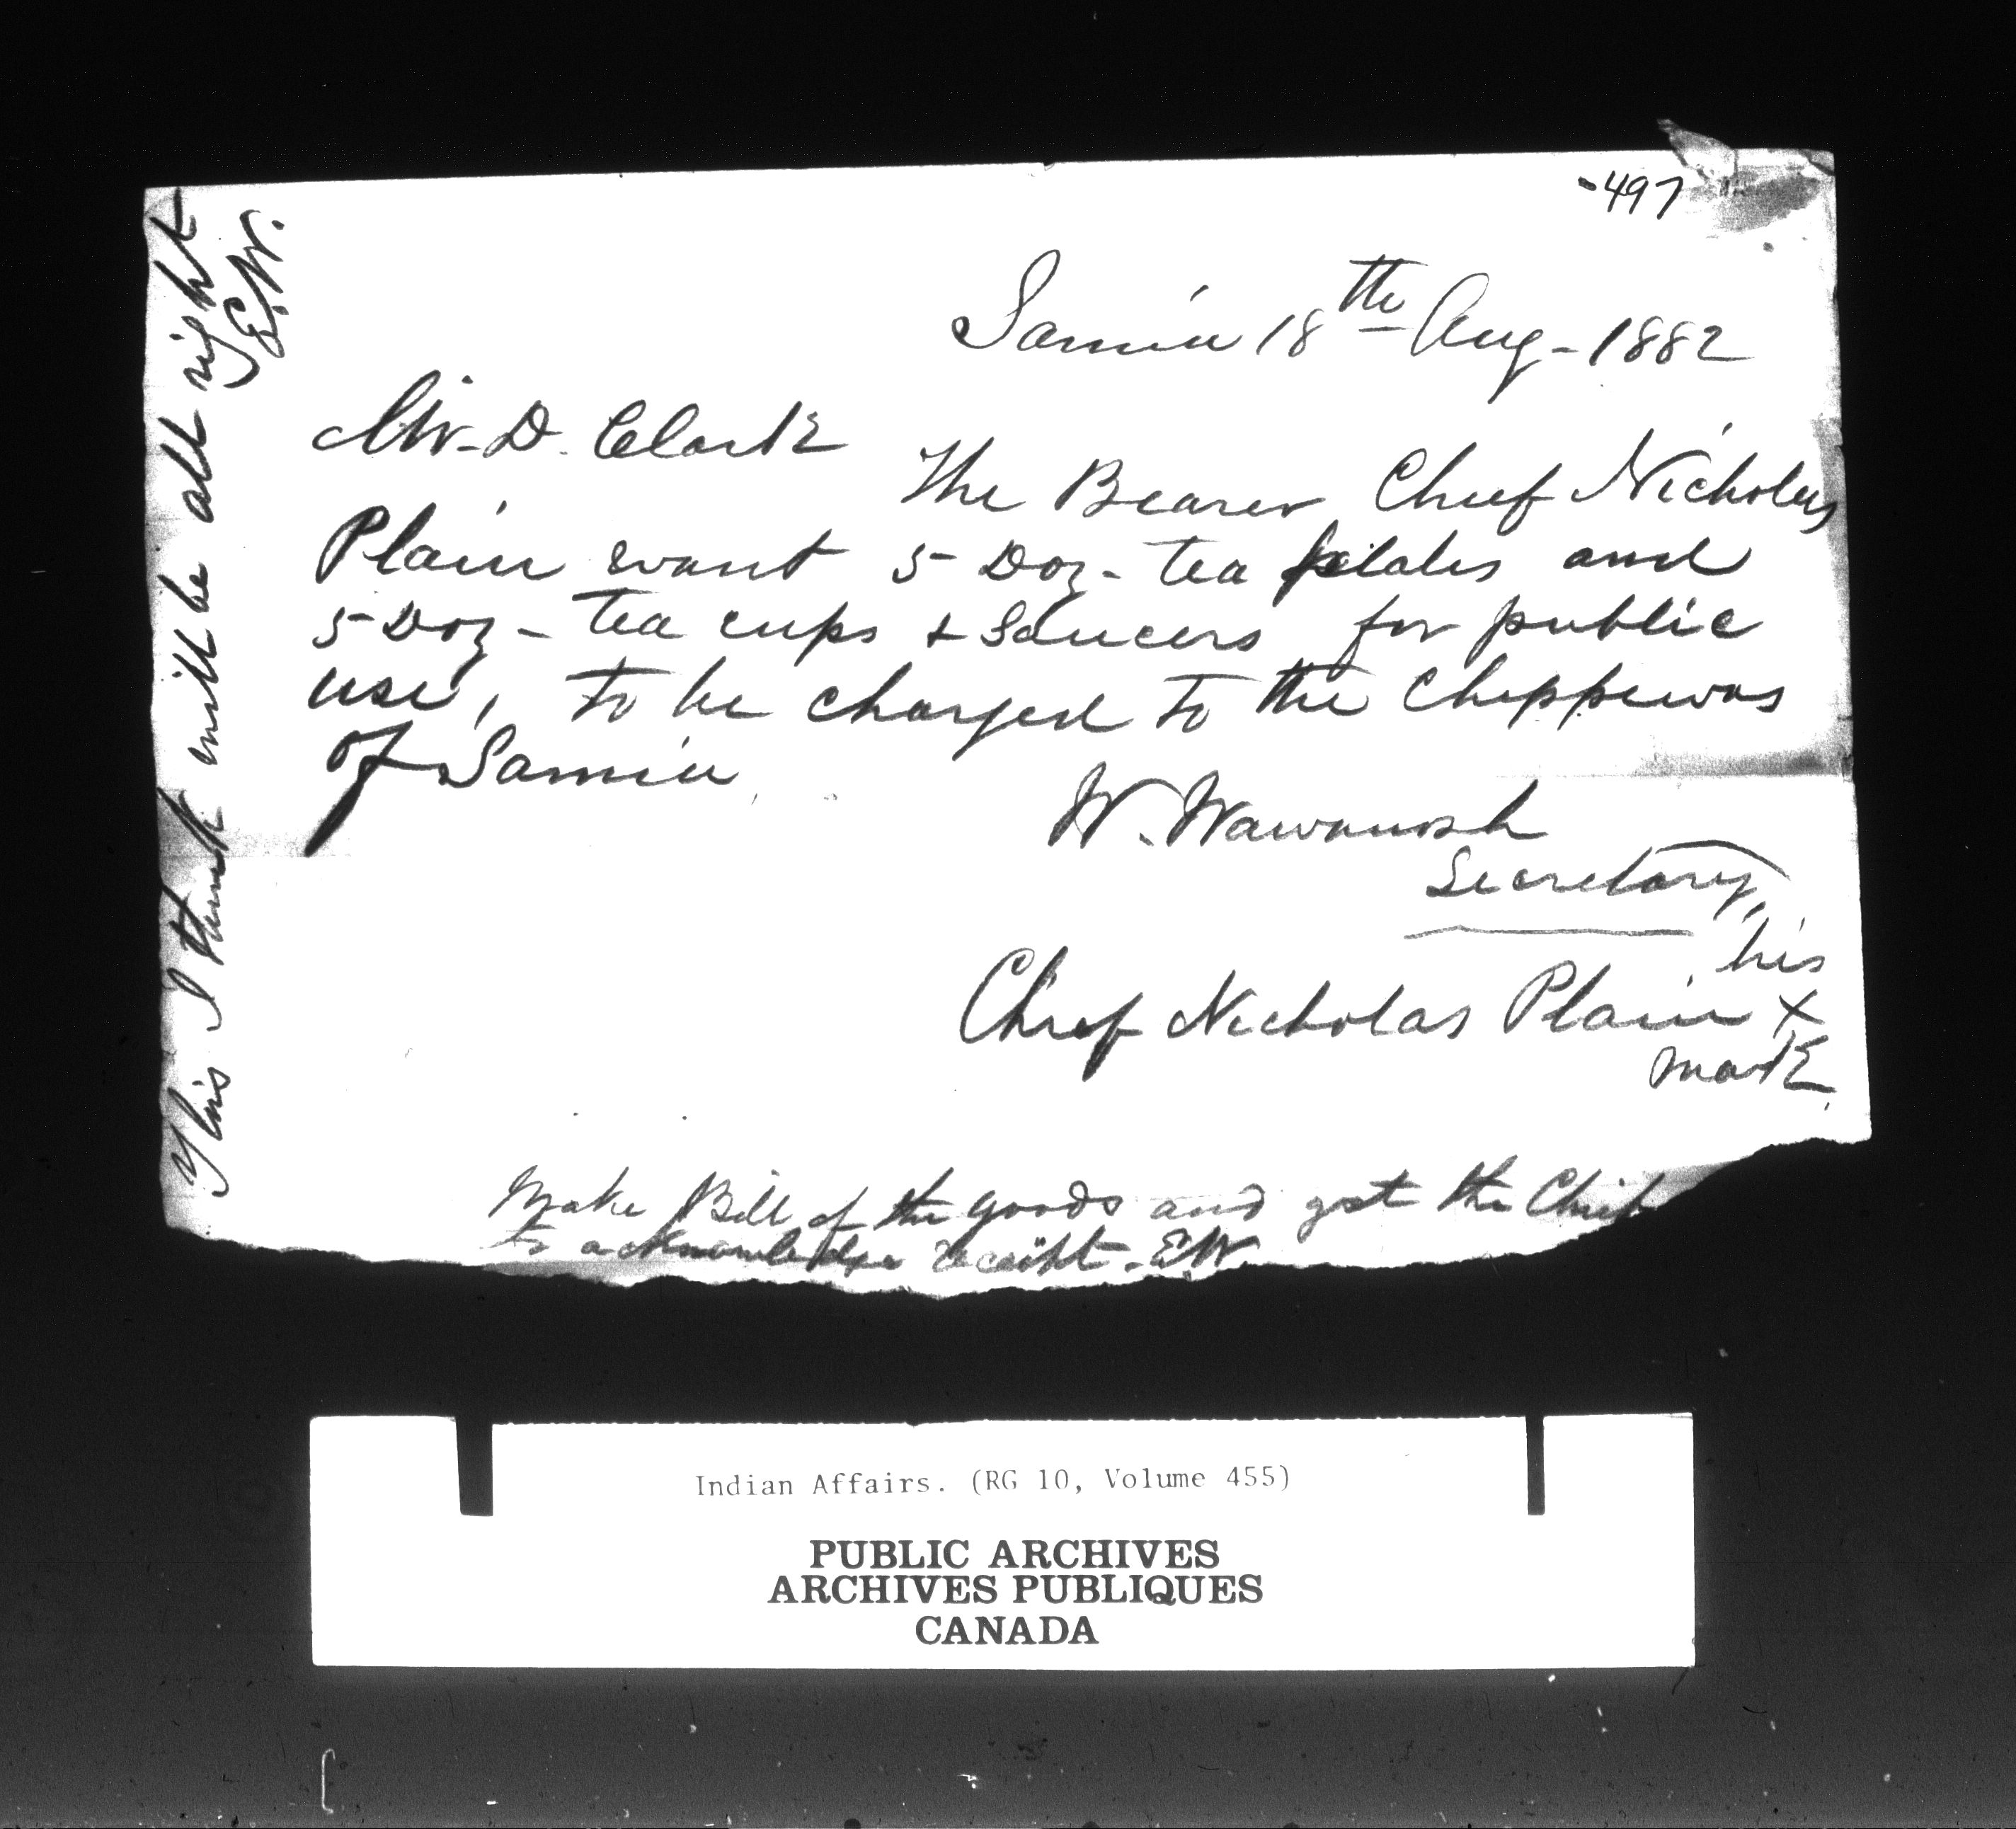 -497
Sarnia 18th Aug - 1882
Mr. D. Clark
The Bearer Chief Nicholas
Plain want 5 Doz - tea plates and
5 Doz - tea cups & Saucers for public
use, to be charged to the Chippewas
of Sarnia,
W. Wawanosh
Secretary
his
Chief Nicholas Plain X
mark
Make Bill of the goods and get the Chief
to acknowledge receipt - E.W.
This I think will be all right
E.W.
Indian Affairs. (RG 10, Volume 455)
PUBLIC ARCHIVES
ARCHIVES PUBLIQUES
CANADA